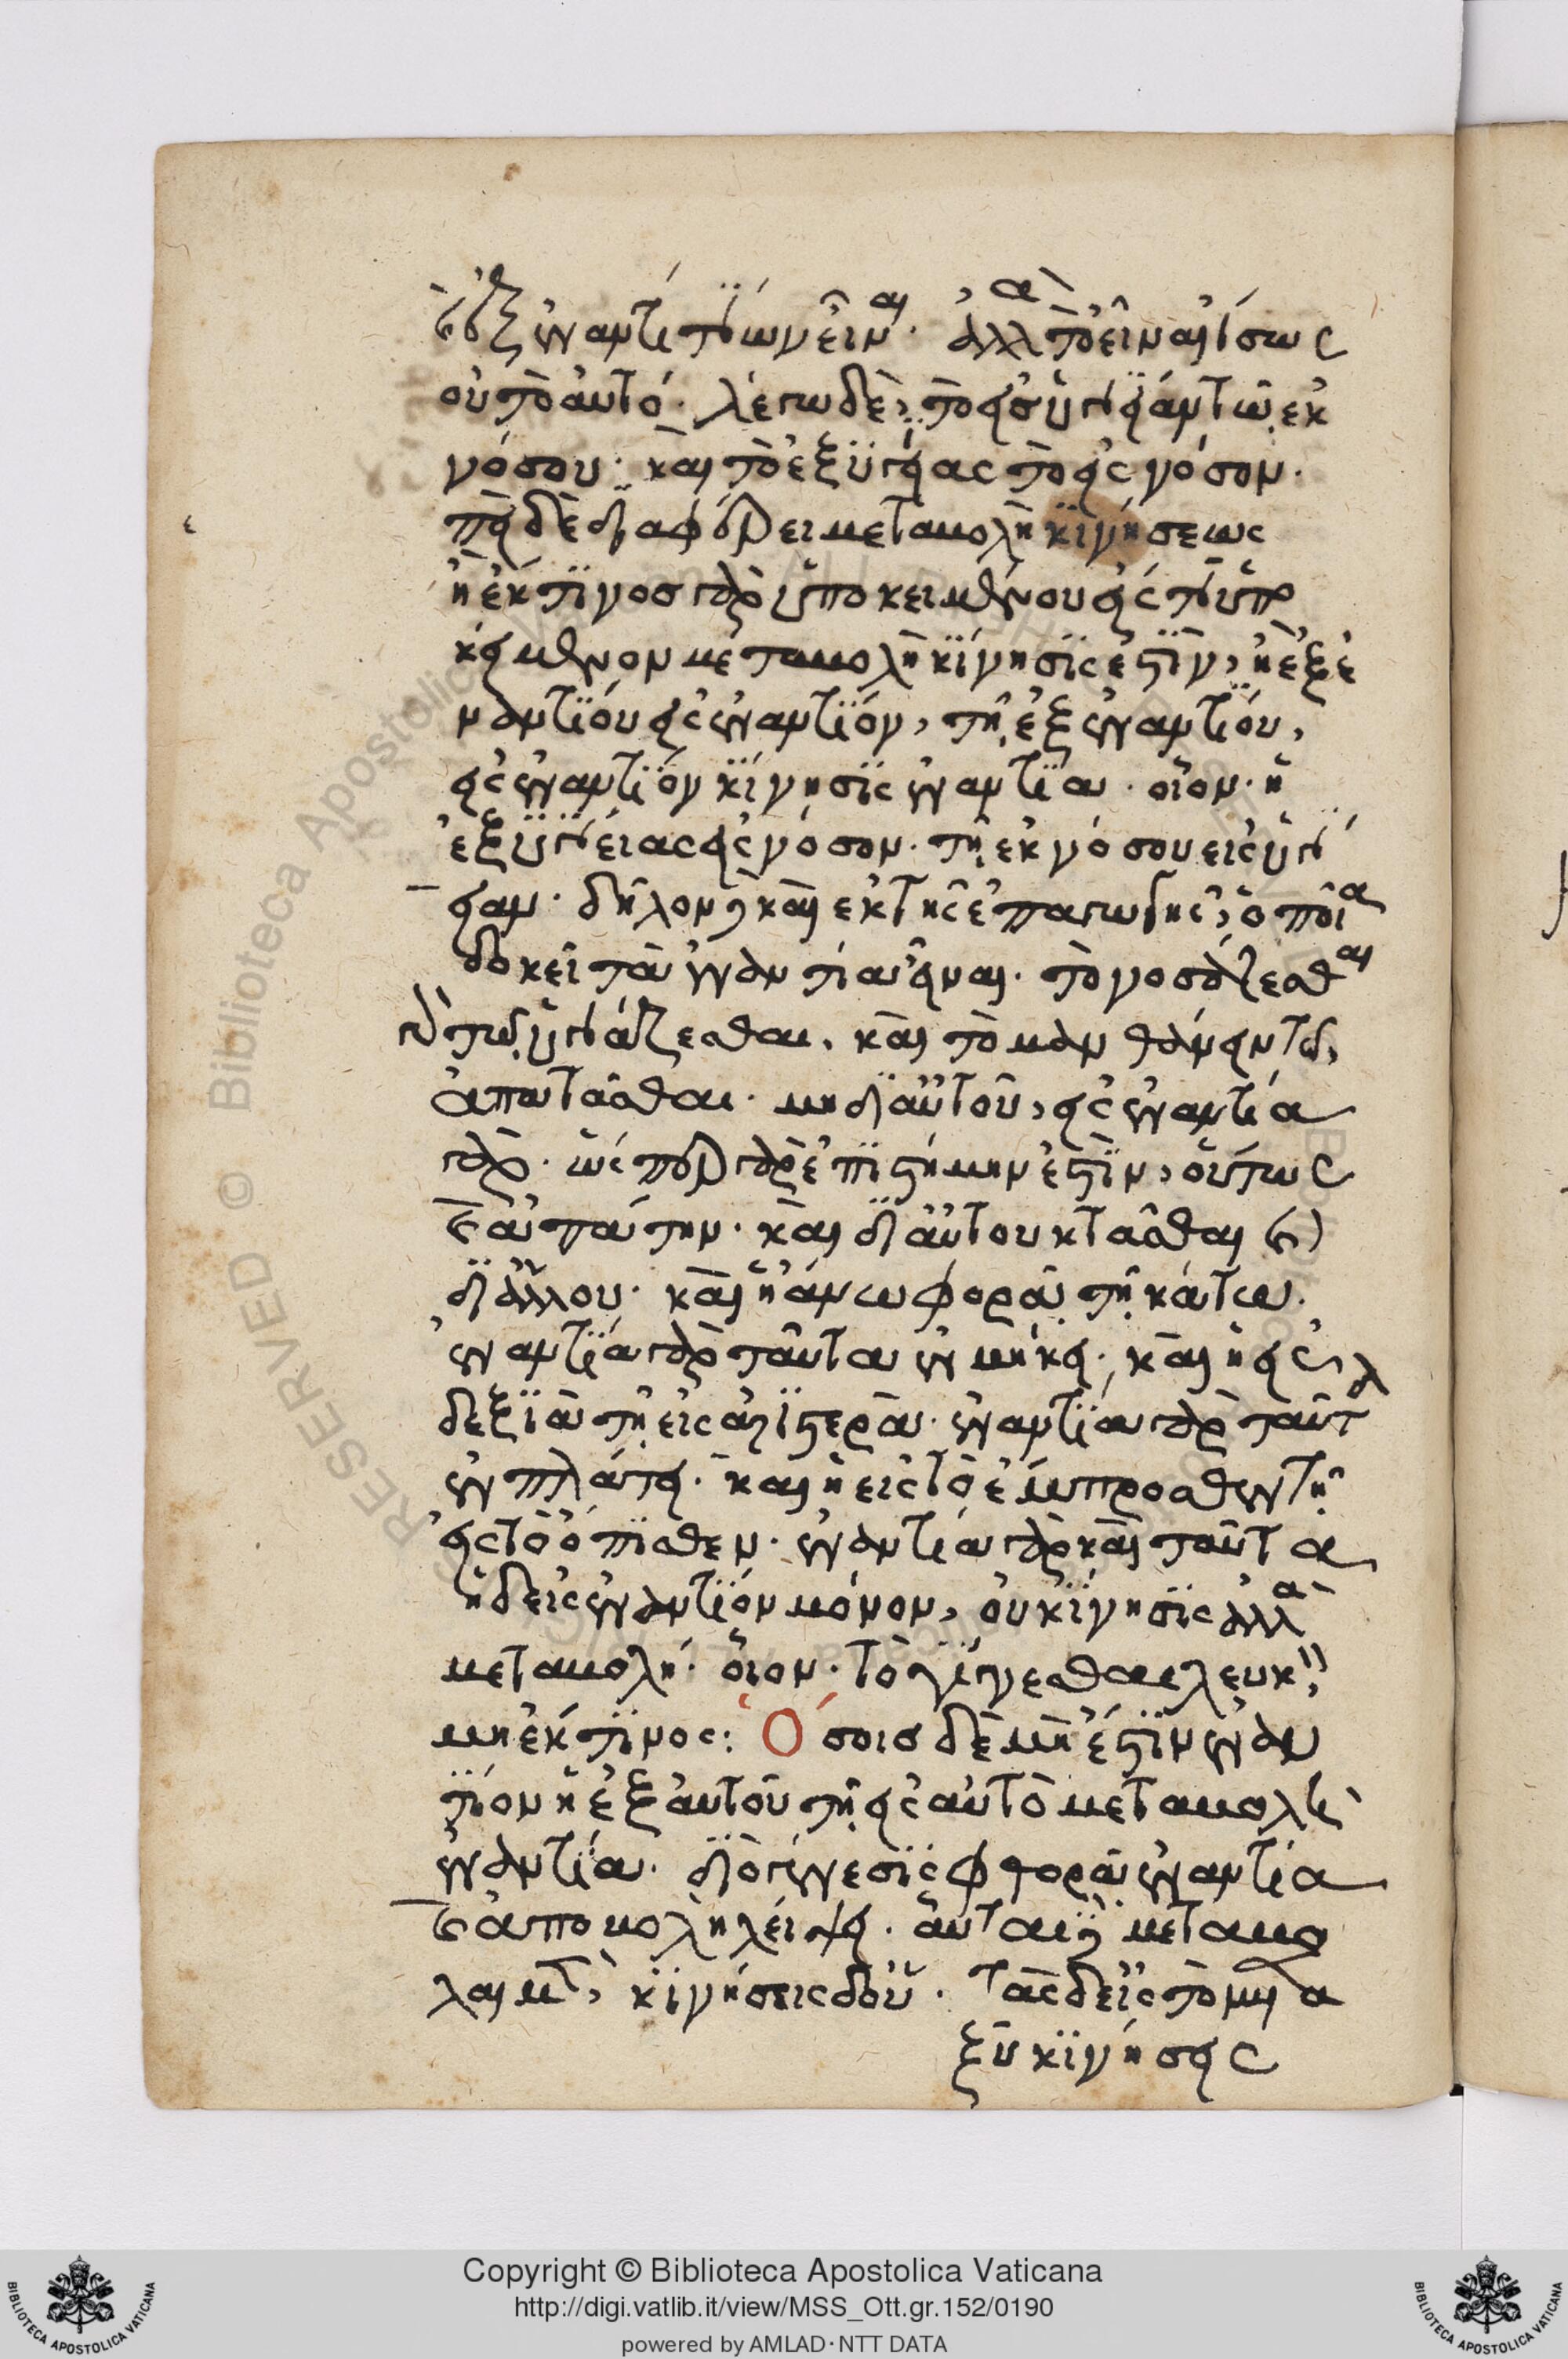 καὶ ἐξ ἐναντίου τῶν εἶναι. ἀλλὰ τὸ εἶναι ἴσως
οὐ τὸ αὐτό. λέγω δὲ, τὸ εἰς ὑγείαν τῶ ἐκ
νόσου. καὶ τὸ ἐξ ὑγείας τὸ εἰς νόσον.
ἐπεὶ δὲ διαφέρει μεταβολὴ κινήσεως
ἡ ἐκ τινοσ γὰρ ὑποκειμένου εἰς τὶ ὑπο
κείμενον μεταβολὴ κίνησις ἐστὶν, ἡ ἐξ ἐ
ναντίου εἰς ἐναντίον, τῆ ἐξ ἐναντίου,
εἰς ἐναντίον κίνησις ἐναντία. οἷον. ἡ
ἐξ ὑγείας εἰς νόσον. τῆ ἐκ νόσου εἰς ὑγί
ειαν. δῆλον δὲ καὶ ἐκ τῆς ἐπαγωγῆς, ὁποῖα
δοκεῖ τὰ ἐναντία εἶναι. τὸ νοσάζεσθαι
γὰρ τῶ ὑγιάζεσθαι. καὶ τὸ μανθάνειν τῶ,
ἀπατᾶσθαι. μὴ δι' αὐτοῦ, εἰς ἐναντία
γὰρ. ὥσπερ γὰρ ἐπιστήμην ἐστὶν, οὕτως
καὶ ἀπάτην. καὶ δι' αὐτοῦ κτᾶσθαι καὶ
δι' ἄλλου. καὶ ἡ ἄνω φορὰ τῆ κάτω.
ἐναντία γὰρ ταῦτα ἐν μήκει. καὶ ἡ εἰς
δεξιὰ τῆ εἰς ἀριστερά. ἐναντία γὰρ ταῦτ
ἐν πλάτει. καὶ ἡ εἰς τὸ ἔμπροσθεν τῆ
εἰς τὸ ὄπισθεν. ἐναντία γὰρ καὶ ταῦτα
ἡ δ' εἰς ἐναντίον μόνον, οὐ κίνησις ἀλλὰ
μεταβολή. οἷον. τὸ γίγνεσθαι λευκὸν,
μὴ ἐκ τινος: Ὅσοισ δὲ μὴ ἐστὶν ἐναν
τίον ἡ ἐξ αὐτοῦ τῆ εἰς αὐτὸ μεταβολὴ
ἐναντία. διὸ γένεσις φθορᾶ ἐναντία
καὶ ἀποβολὴ λείψει. αὗται δὲ μεταβο
λαὶ μὲν, κινήσεις δ' οὔ. τὰς δ' εἰς τὸ μετα
ξὺ κινήσεις
Copyright © Biblioteca Apostolica Vaticana
http://digi.vatlib.it/view/MSS_Ott.gr.152/0190
powered by AMLAD·NTT DATA